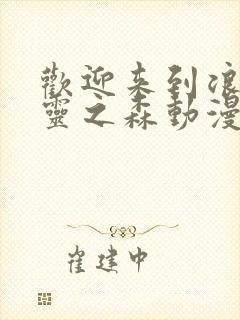 歡迎来到浪
靈之森動漫
崔建中